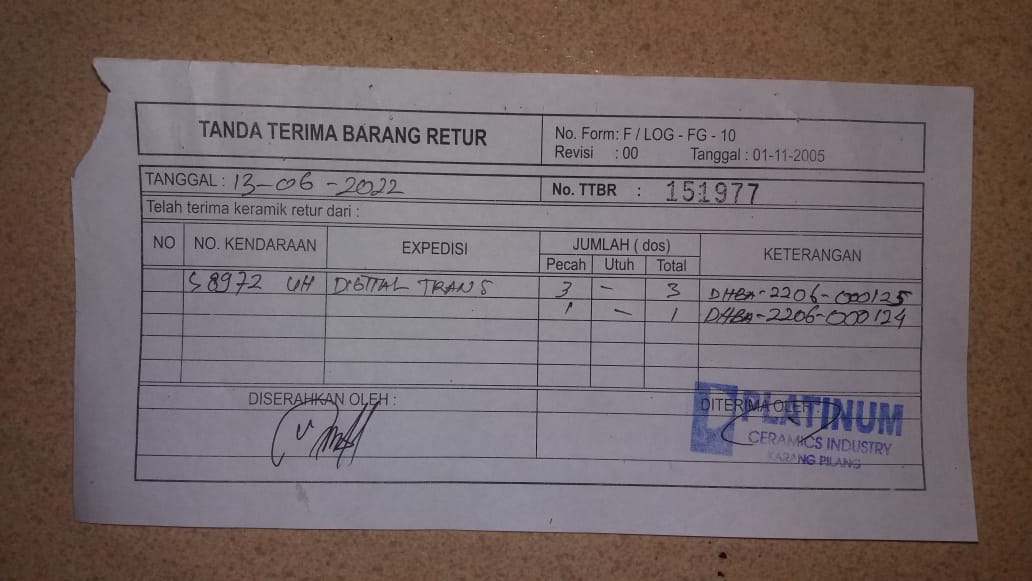 TANDA TERIMA BARANG RETUR
No. Form: F / LOG - FG - 10
Revisi : 00 Tanggal : 01-11-2005
TANGGAL : 13-06-2022
No. TTBR : 151977
Telah terima keramik retur dari :
NO NO. KENDARAAN EXPEDISI JUMLAH ( dos) KETERANGAN
Pecah Utuh Total
S 8972 UH DIGITAL TRANS 3 - 3 DHBA-2206-000125
1 - 1 DHBA-2206-000124
DISERAHKAN OLEH : DITERIMA OLEH :
PLATINUM
CERAMICS INDUSTRY
KARANG PILANG